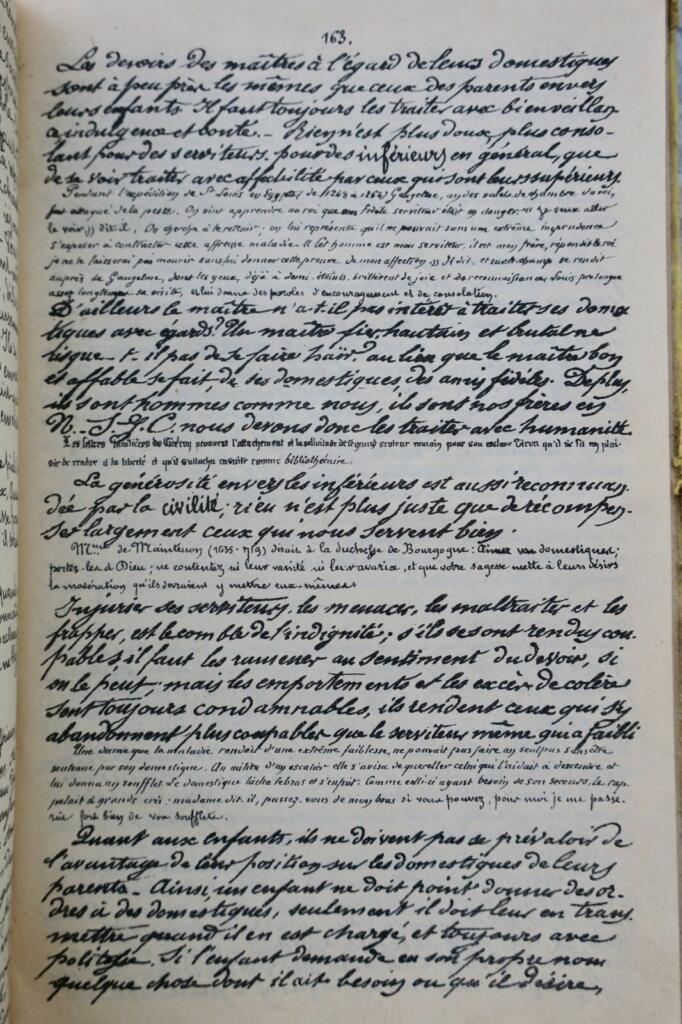 163.
Les devoirs des maîtres à l'égard de leurs domestiques
sont à peu près les mêmes que ceux des parents envers
leurs enfants Il faut toujours les traiter avec bienveillan
indulgence et bonté. _ Rien n'est plus doux, plus conso-
lant pour des serviteurs, pour des inférieurs en général, que
de se voir traiter avec affabilité par ceux qui sont leurs supérieurs.
Pendant l'expédition de St Louis en Egypte, de (1248 à 1254) Gaugelme, un des valets de chambre du roi,
fut attaqué de la peste. On vint apprendre au roi que son fidèle serviteur était en danger. « je veux aller
le voir » dit-il. On cherche à le retenir; on lui représenta qu'il ne pouvait sans une extrême imprudence
s'exposer à contracter cette affreuse maladie. « Cet homme est mon serviteur, il est mon frère, répondit le roi
je ne le laisserai pas mourir sans lui donner cette preuve de mon affection. » Il dit, et sur le champ se rendit
auprès de Gaugelme, dont les yeux, déjà à demi éteints, brillèrent de joie et de reconnaissance Louis prolongea
assez longtemps sa visite, et lui donna des paroles d'encouragement et de consolation.
D'ailleurs le maître n'a-t-il pas intérêt à traiter ses domes
tiques avec égards? Un maître fier, hautain et brutal ne
risque-t-il pas de se faire haïr? au lieu que le maître bon
et affable se fait, de ses domestiques, des amis fidèles. De plus,
ils sont hommes comme nous, ils sont nos frères en
N.-S.-J.C. nous devons donc les traiter avec humanité
Les lettres familières de Cicéron prouvent l'attachement et la sollicitude de ce grand orateur romain pour son esclave Tiron qu'il se fit un plai-
sir de rendre à la liberté et qu'il s'attacha ensuite comme bibliothécaire.
La générosité envers les inférieurs est aussi recomman,
dée par la civilité; rien n'est plus juste que de récompen-
ser largement ceux qui nous servent bien.
Mme de Maintenon (1635-1719) disait à la duchesse de Bourgogne: Aimez vos domestiques;
portez-les à Dieu; ne contentez ni leur vanité ni leur avarice, et que votre sagesse mette à leurs désirs
la modération qu'ils devraient y mettre eux-mêmes
Injurier ses serviteurs, les menacer, les maltraiter et les
frapper, est le comble de l'indignité; s'ils se sont rendus cou-
pables, il faut les ramener au sentiment du devoir, si
on le peut; mais les emportements et les excès de colère
sont toujours condamnables, ils rendent ceux qui s'y
abandonnent plus coupables que le serviteur même qui a failli
Une dame que la maladie rendait d'une extrême faiblesse, ne pouvait pas faire un seul pas sans être
soutenue par son domestique. Au milieu d'un escalier elle s'avisa de quereller celui qui l'aidait à descendre et
lui donna un soufflet. Le domestique lâcha le bras et s'enfuit. Comme celle-ci ayant besoin de son secours, le rap
pelait à grands cris: madame dit-il, passez-vous de mon bras si vous pouvez, pour moi je me passe
rai fort bien de vos soufflets.
Quant aux enfants, ils ne doivent pas se prévaloir de
l'avantage de leur position sur les domestiques de leurs
parents _ Ainsi, un enfant ne doit point donner des or-
dres à des domestiques, seulement il doit leur en trans
mettre quand il en est chargé, et toujours avec
politesse. Si l'enfant demande en son propre nom
quelque chose dont il ait besoin ou qu'il désire,